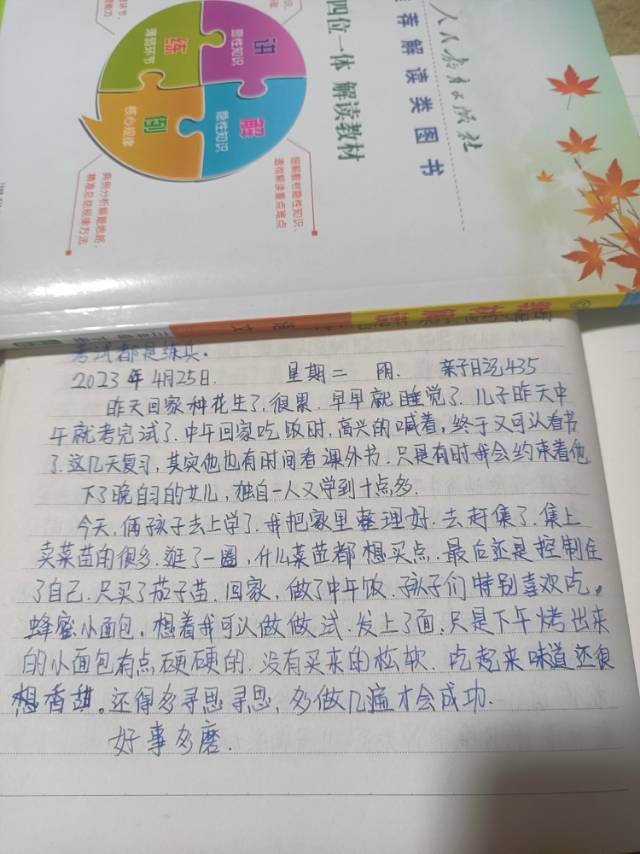 人民教育出版社
荐解读类图书
四位一体 解读教材
讲
显性知识
练
薄弱环节
解
隐性知识
例
核心规律
细解教材隐性知识、
透彻解读重点难点
两例分析解题思路，
精准总结规律方法
语文
考试都是练兵。
2023年4月25日. 星期二 阴. 亲子日记435
昨天回家种花生了,很累.早早就睡觉了.儿子昨天中
午就考完试了.中午回家吃饭时,高兴的喊着,终于又可以看书
了.这几天复习,其实他也有时间看课外书.只是有时我会约束着他
下了晚自习的女儿,独自一人又学到十点多.
今天,俩孩子去上学了.我把家里整理好.去赶集了.集上
卖菜苗的很多.逛了一圈,什么菜苗都想买点.最后还是控制住
了自己.只买了茄子苗.回家,做了中午饭.孩子们特别喜欢吃,
蜂蜜小面包,想着我可以做做试.发上了面.只是下午烤出来
的小面包有点硬硬的.没有买来的松软.吃起来味道还很
香甜。还得多寻思寻思,多做几遍才会成功.
好事多磨.